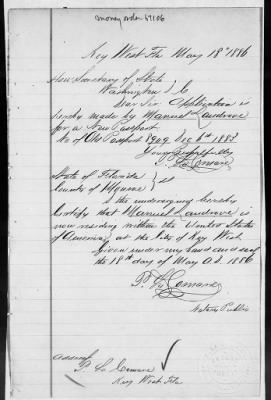 money order 69106
Key West Fla May 18th 1886
Hon Secretary of State
Washington D C
Dear Sir Application is
hereby made by Manuel Landrove
for a New Passport
No of Old Passport 8909 Dec 6th 1883
Yours Respectfully
State of Florida } ss
County of Monroe
I the undersigned hereby
Certify that Manuel Landrove is
now residing within the United States
of America at the City of Key West
Given under my hand and seal
the 18th day of May A.D. 1886
Notary Public
address
Key West Fla